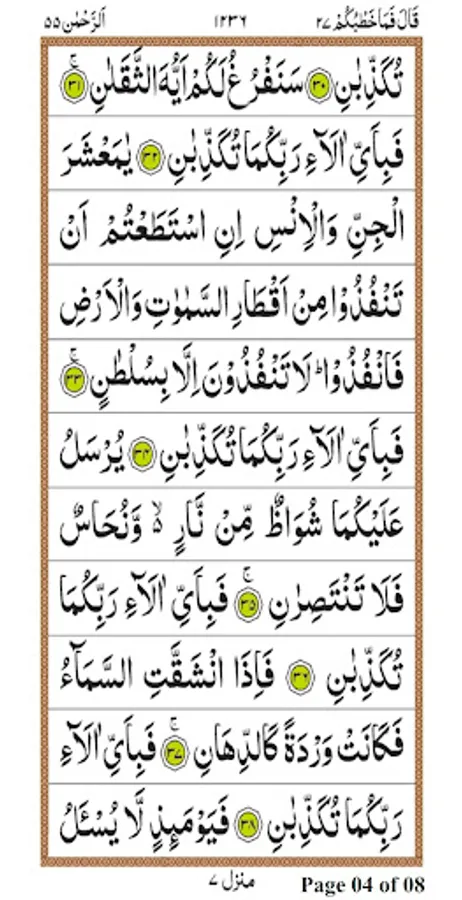 قَالَ فَمَا خَطْبُكُمْ ٢٧ ١٢٣٦ اَلرَّحْمٰن ٥٥
تُكَذِّبٰنِ ﴿٣٠﴾ سَنَفْرُغُ لَكُمْ اَيُّهَ الثَّقَلٰنِ ﴿٣١﴾ۚ
فَبِاَيِّ اٰلَآءِ رَبِّكُمَا تُكَذِّبٰنِ ﴿٣٢﴾ يٰمَعْشَرَ
الْجِنِّ وَالْاِنْسِ اِنِ اسْتَطَعْتُمْ اَنْ
تَنْفُذُوْا مِنْ اَقْطَارِ السَّمٰوٰتِ وَالْاَرْضِ
فَانْفُذُوْا ؕ لَا تَنْفُذُوْنَ اِلَّا بِسُلْطٰنٍ ﴿٣٣﴾ۚ
فَبِاَيِّ اٰلَآءِ رَبِّكُمَا تُكَذِّبٰنِ ﴿٣٤﴾ يُرْسَلُ
عَلَيْكُمَا شُوَاظٌ مِّنْ نَّارٍ ۙ۬ وَّنُحَاسٌ
فَلَا تَنْتَصِرٰنِ ﴿٣٥﴾ۚ فَبِاَيِّ اٰلَآءِ رَبِّكُمَا
تُكَذِّبٰنِ ﴿٣٦﴾ فَاِذَا انْشَقَّتِ السَّمَآءُ
فَكَانَتْ وَرْدَةً كَالدِّهَانِ ﴿٣٧﴾ۚ فَبِاَيِّ اٰلَآءِ
رَبِّكُمَا تُكَذِّبٰنِ ﴿٣٨﴾ فَيَوْمَئِذٍ لَّا يُسْـَٔلُ
منزل ٧ Page 04 of 08